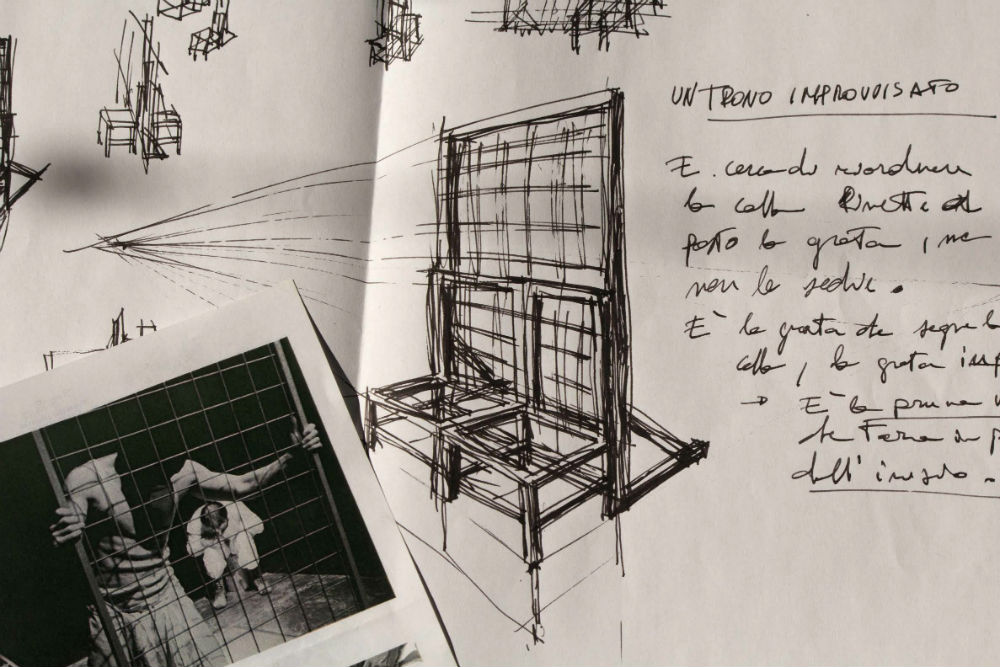 UN TRONO IMPROVVISATO
E cercando riordinare
la cella Rimette al
posto la grata, ma
non la sedie.
È la grata che segue la
cella, la grata
→ È la prima
che
dell'inizio.